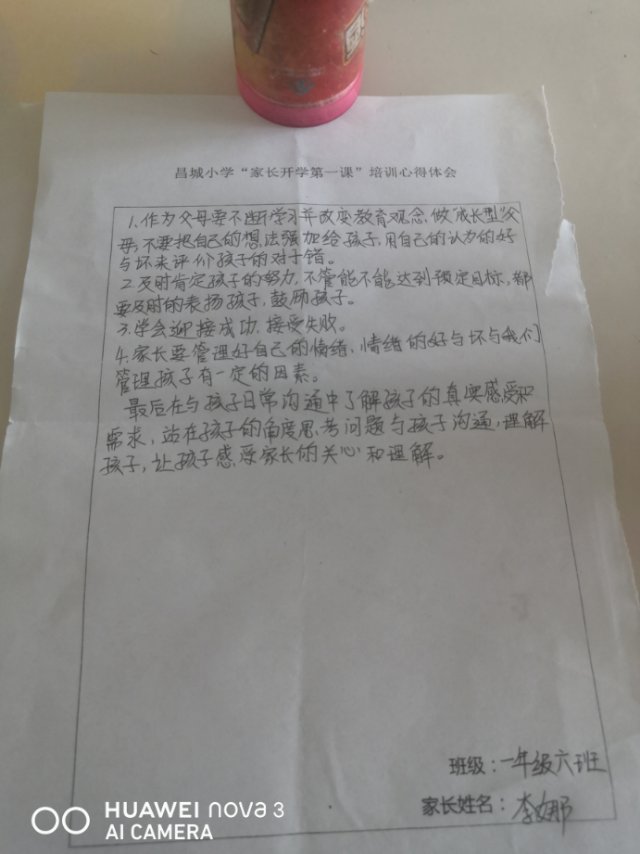 昌城小学“家长开学第一课”培训心得体会
1.作为父母要不断学习并改变教育观念,做“成长型”父
母,不要把自己的想法强加给孩子,用自己的认为的好
与坏来评价孩子的对于错。
2.及时肯定孩子的努力,不管能不能达到预定目标,都
要及时的表扬孩子,鼓励孩子。
3.学会迎接成功,接受失败。
4.家长要管理好自己的情绪,情绪的好与坏与我们
管理孩子有一定的因素。
最后在与孩子日常沟通中了解孩子的真实感受和
需求,站在孩子的角度思考问题与孩子沟通,理解
孩子,让孩子感受家长的关心和理解。
班级:一年级六班
家长姓名:李娜
HUAWEI nova 3
AI CAMERA